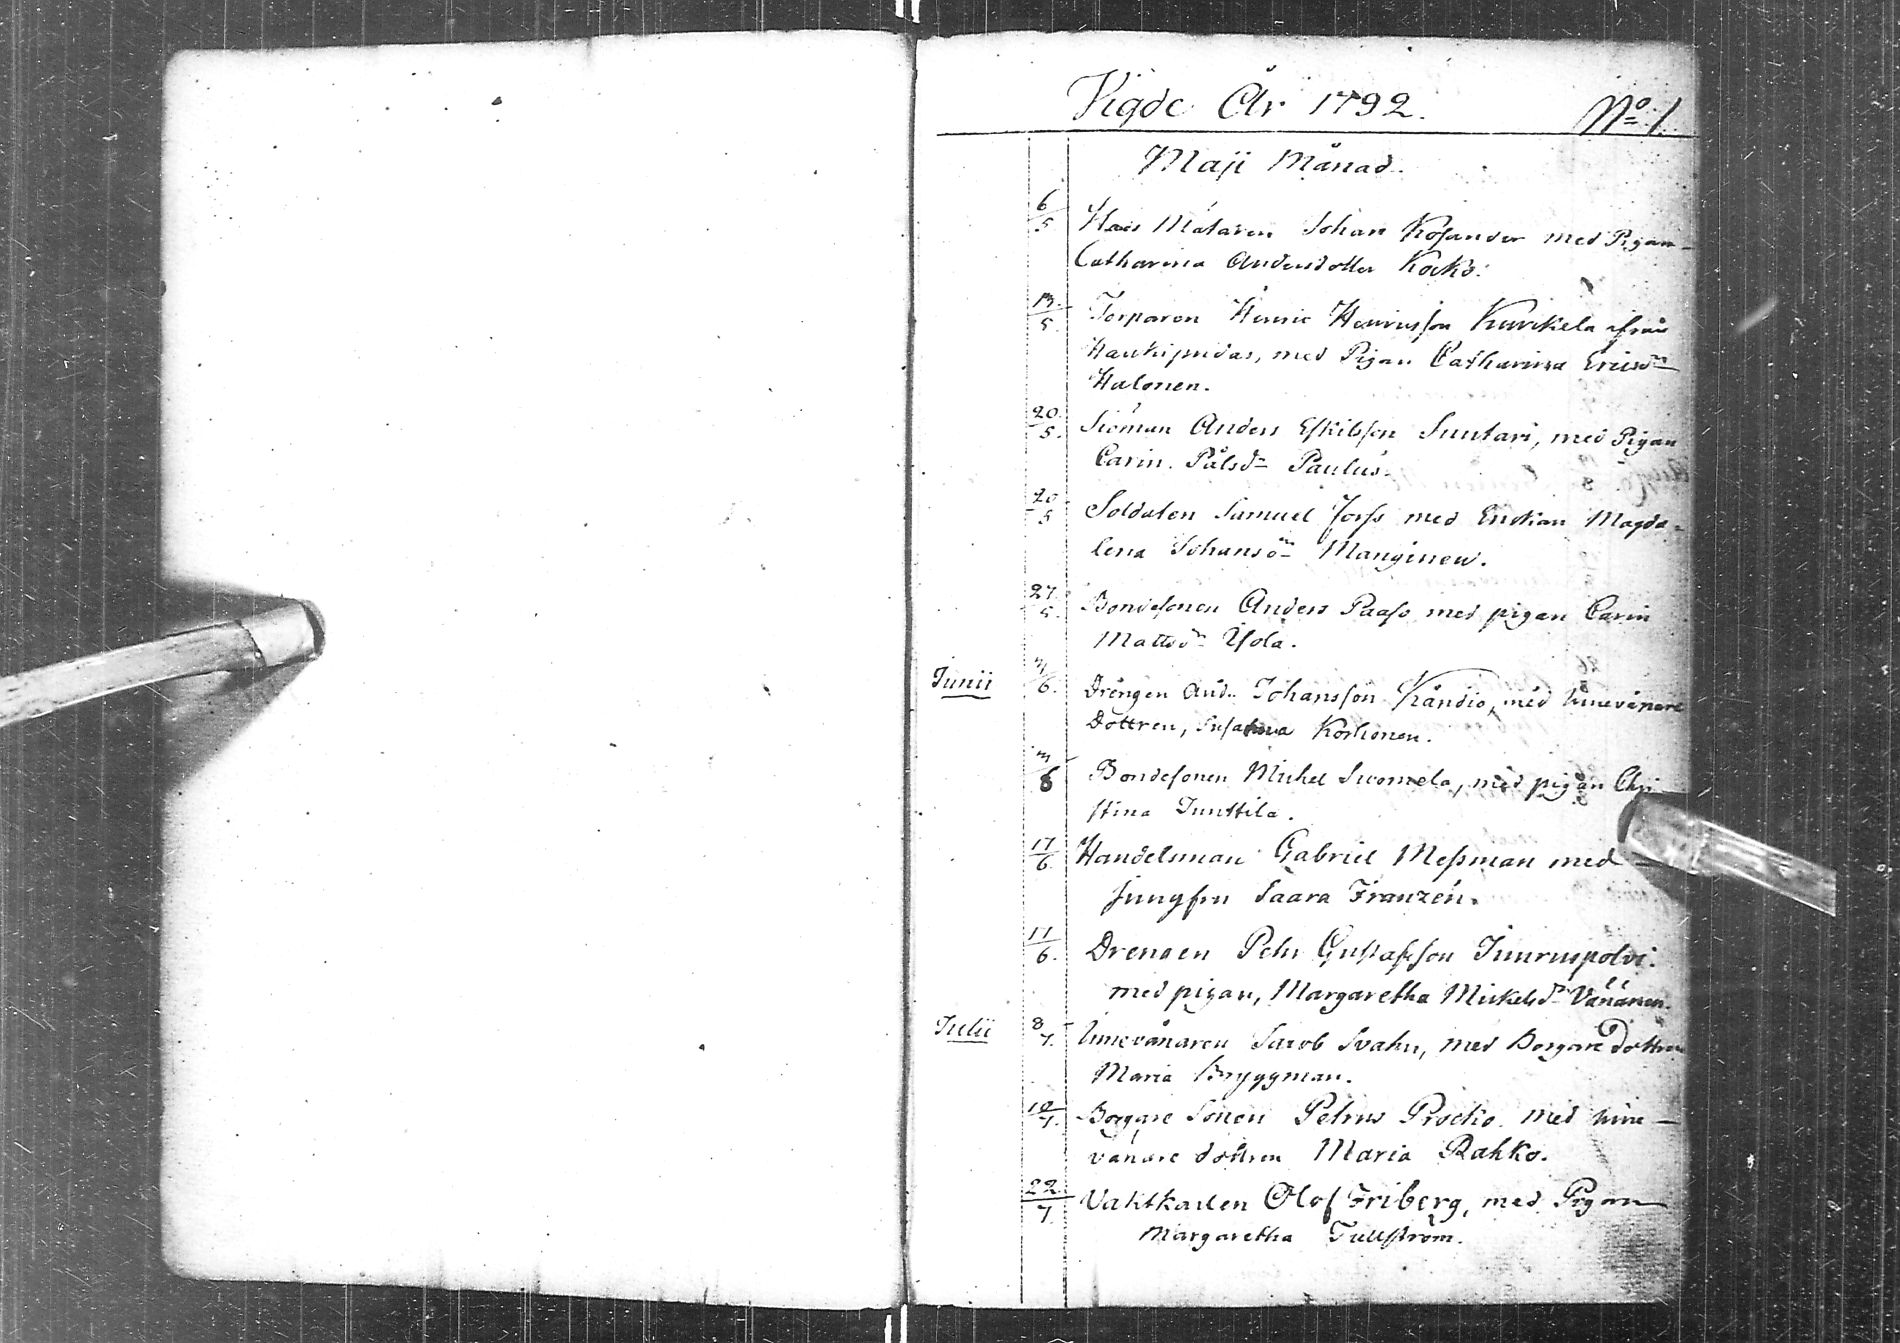 Vigde År 1792. No 1.
Maji Månad.
6/5 Mätaren Johan Kosander med Pigan
Catharina Andersdotter Kocko.
13/5 Torparen Henric Henricsson Kurckela ifrån
Haukipudas, med Pigan Catharina Ericsdr
Halonen.
20/5 Siöman Anders Eskilsson Suutari, med Pigan
Carin Pålsdr Paulus.
20/5 Soldaten Samuel Forss med Enckan Magda-
lena Johansdr Manginen.
27/5 Bondesonen Anders Paaso med pigan Carin
Mattsdr Ysola.
Junii /6. Drängen And. Johansson Kåndio, med Innevånare
Dottren, Susanna Korhonen.
/6 Bondesonen Michel Suomela, med pigan Chri
stina Junttila.
17/6 Handelsman Gabriel Messman med
Jungfru Saara Franzén.
17/6. Drengen Pehr Gustafsson Juuruspolvi.
med pigan, Margaretha Mickelsdr Vänänen.
Julii 8/7. Innevånaren Jacob Svahn, med Borgare Dottren
Maria Bryggman.
10/7. Borgare Sonen Petrus Procko med inne-
vånare dottren Maria Rahko.
22/7 Vaktkarlen Olof Friberg, med Pigan
Margaretha Tullström.